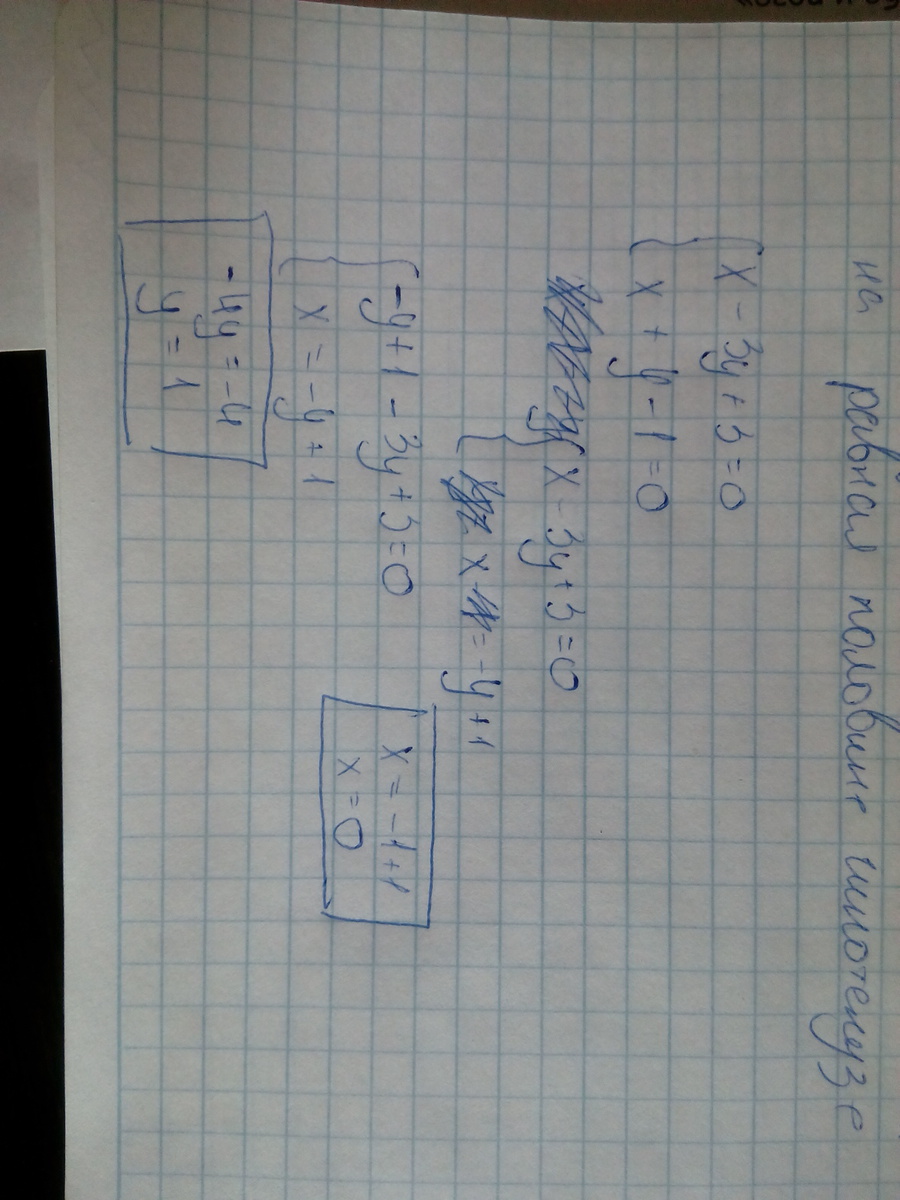 на равная половине гипотенузе
x - 3y + 3 = 0
x + y - 1 = 0
x - 3y + 3 = 0
x = -y + 1
-y + 1 - 3y + 3 = 0
x = -y + 1
x = -1 + 1
x = 0
-4y = -4
y = 1